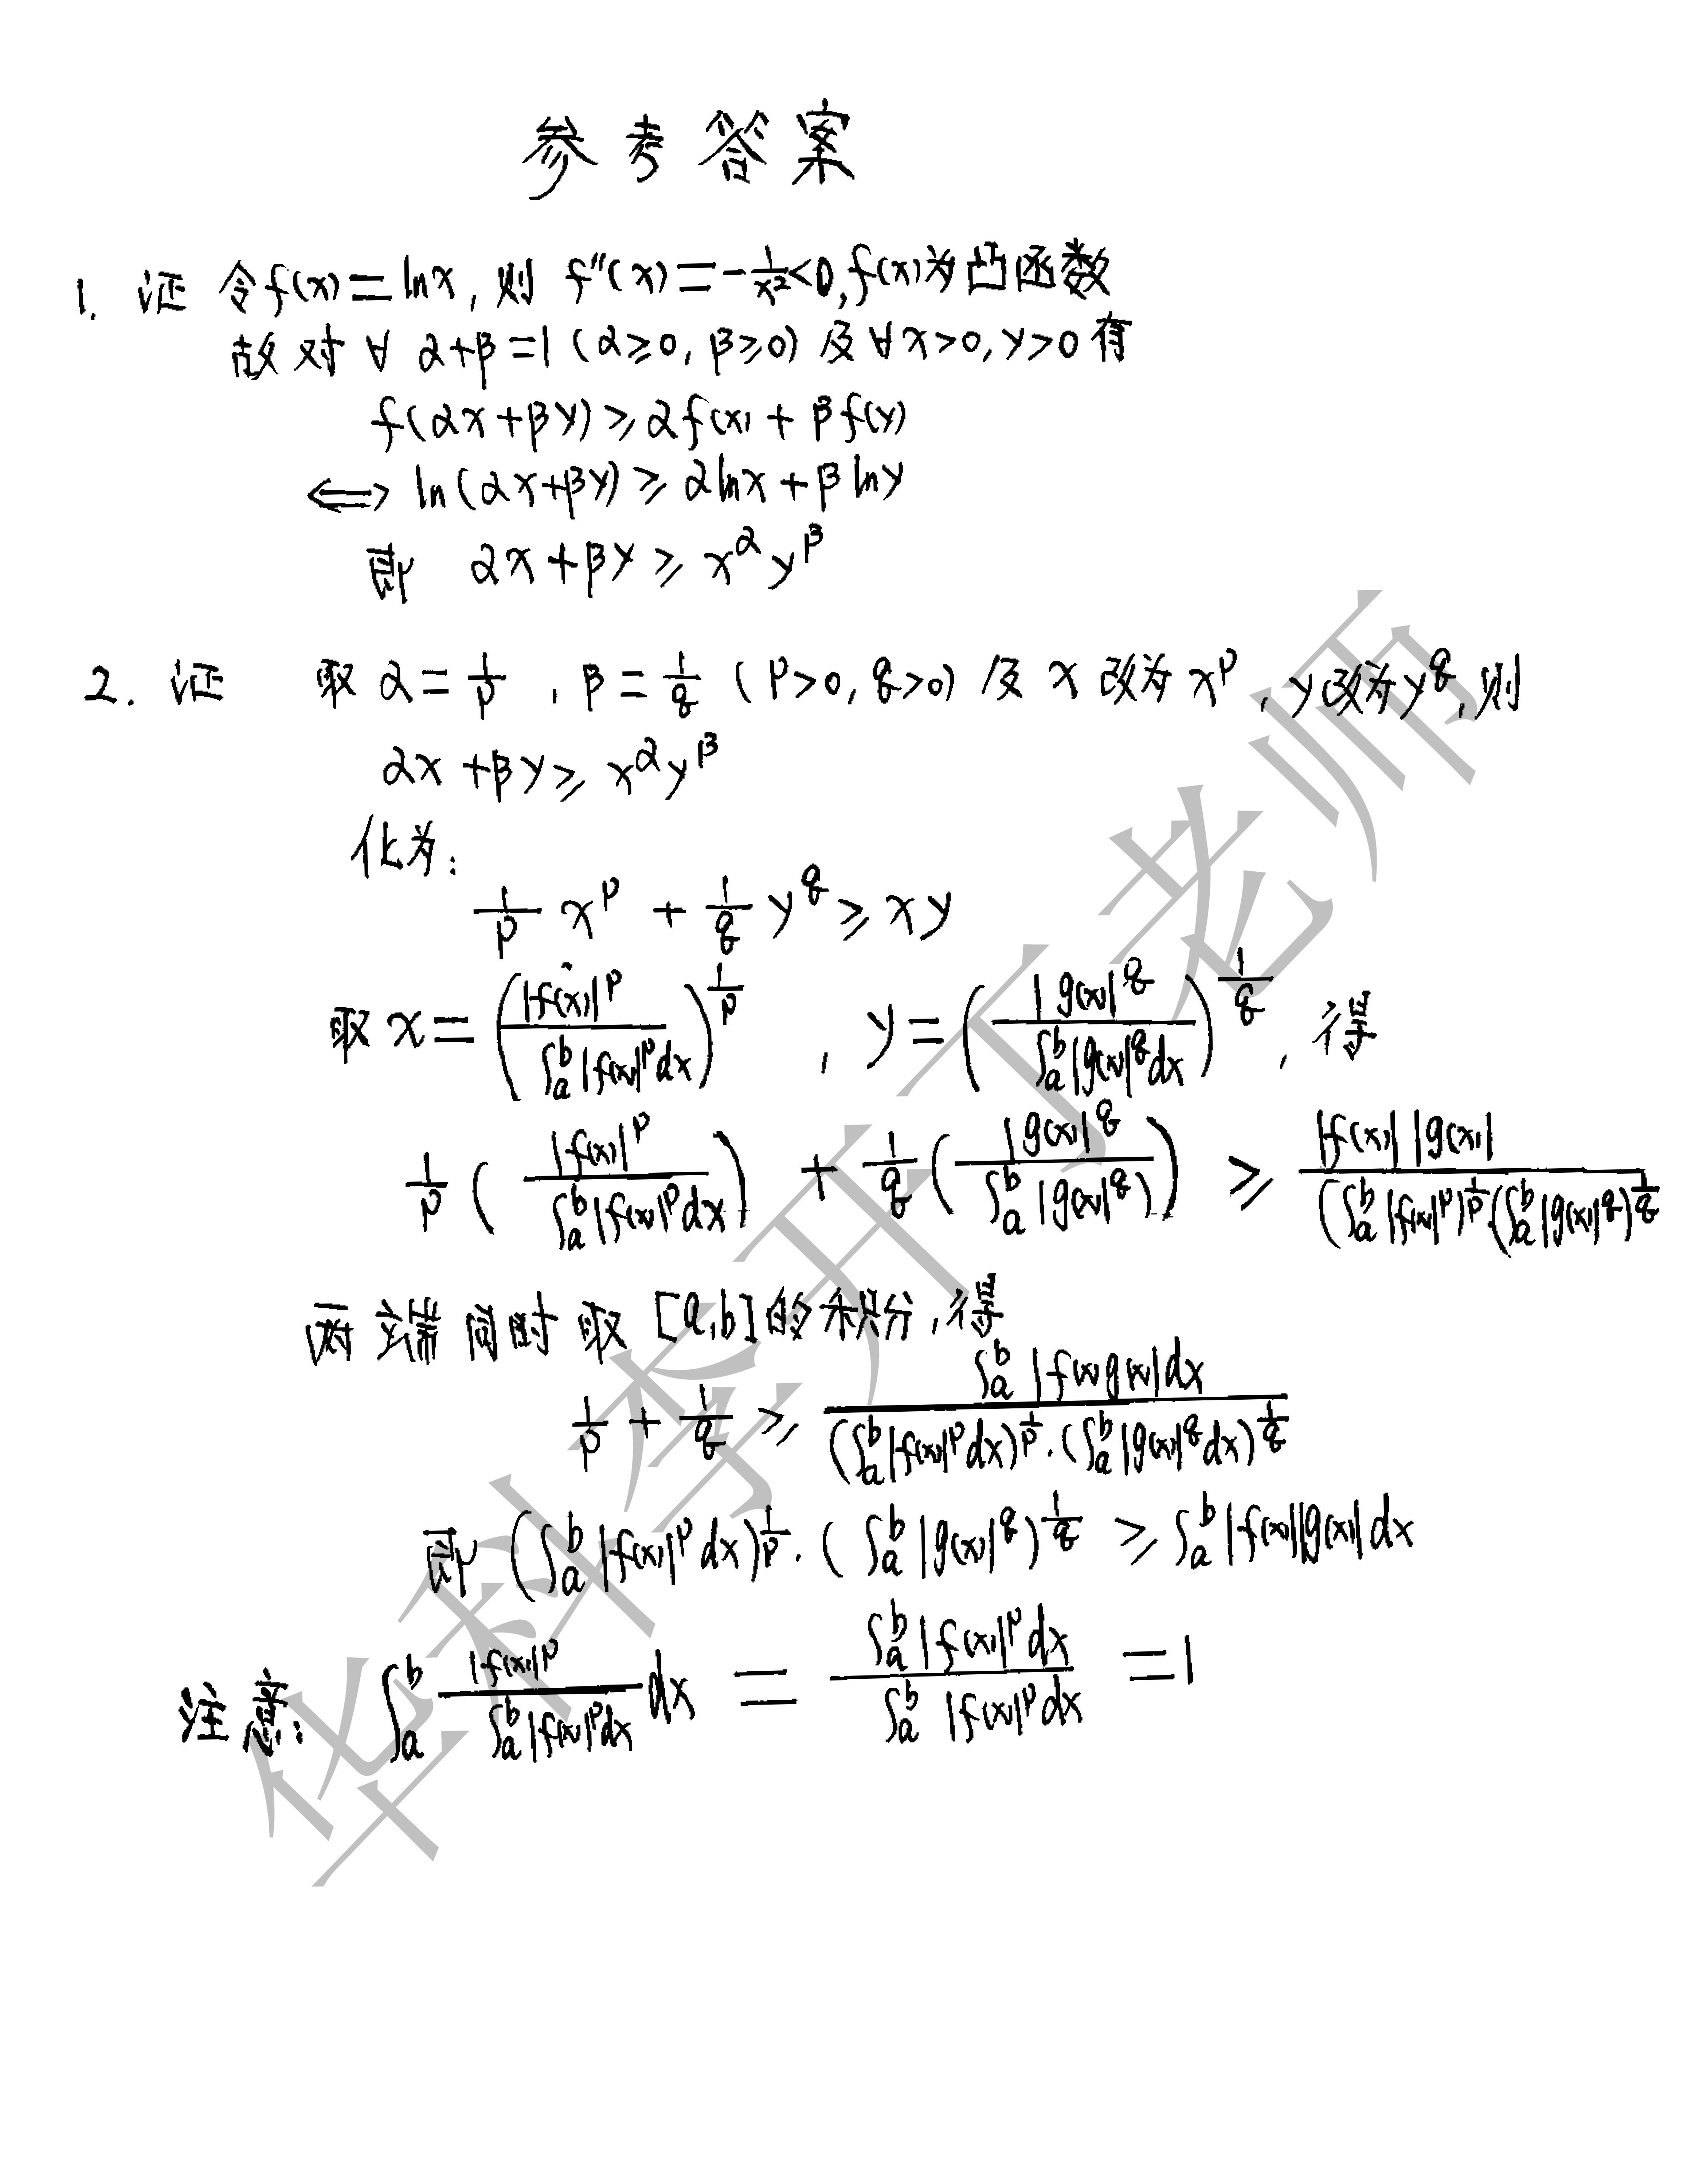 参考答案
1. 证 令f(x)=lnx, 则 f''(x)=-1/x²<0, f(x)为凸函数
故对 ∀ α+β=1 (α≥0, β≥0) 及 ∀x>0, y>0 有
f(αx+βy)≥αf(x)+βf(y)
⟺ ln(αx+βy)≥αlnx+βlny
即 αx+βy≥x^α y^β
2. 证 取 α=1/p, β=1/q (p>0, q>0) 及 x 改为 x^p, y改为y^q, 则
αx+βy≥x^α y^β
化为:
1/p x^p + 1/q y^q ≥ xy
取 x=(|f(x)|^p / ∫_a^b |f(x)|^p dx)^(1/p), y=(|g(x)|^q / ∫_a^b |g(x)|^q dx)^(1/q), 得
1/p (|f(x)|^p / ∫_a^b |f(x)|^p dx) + 1/q (|g(x)|^q / ∫_a^b |g(x)|^q) ) ≥ |f(x)| |g(x)| / (∫_a^b |f(x)|^p)^(1/p) (∫_a^b |g(x)|^q)^(1/q)
两端同时取 [a,b] 的积分, 得
1/p + 1/q ≥ ∫_a^b |f(x)g(x)|dx / (∫_a^b |f(x)|^p dx)^(1/p) · (∫_a^b |g(x)|^q dx)^(1/q)
即 (∫_a^b |f(x)|^p dx)^(1/p) · (∫_a^b |g(x)|^q)^(1/q) ≥ ∫_a^b |f(x)||g(x)| dx
注意: ∫_a^b |f(x)|^p / ∫_a^b |f(x)|^p dx dx = ∫_a^b |f(x)|^p dx / ∫_a^b |f(x)|^p dx = 1
华科李开丁老师